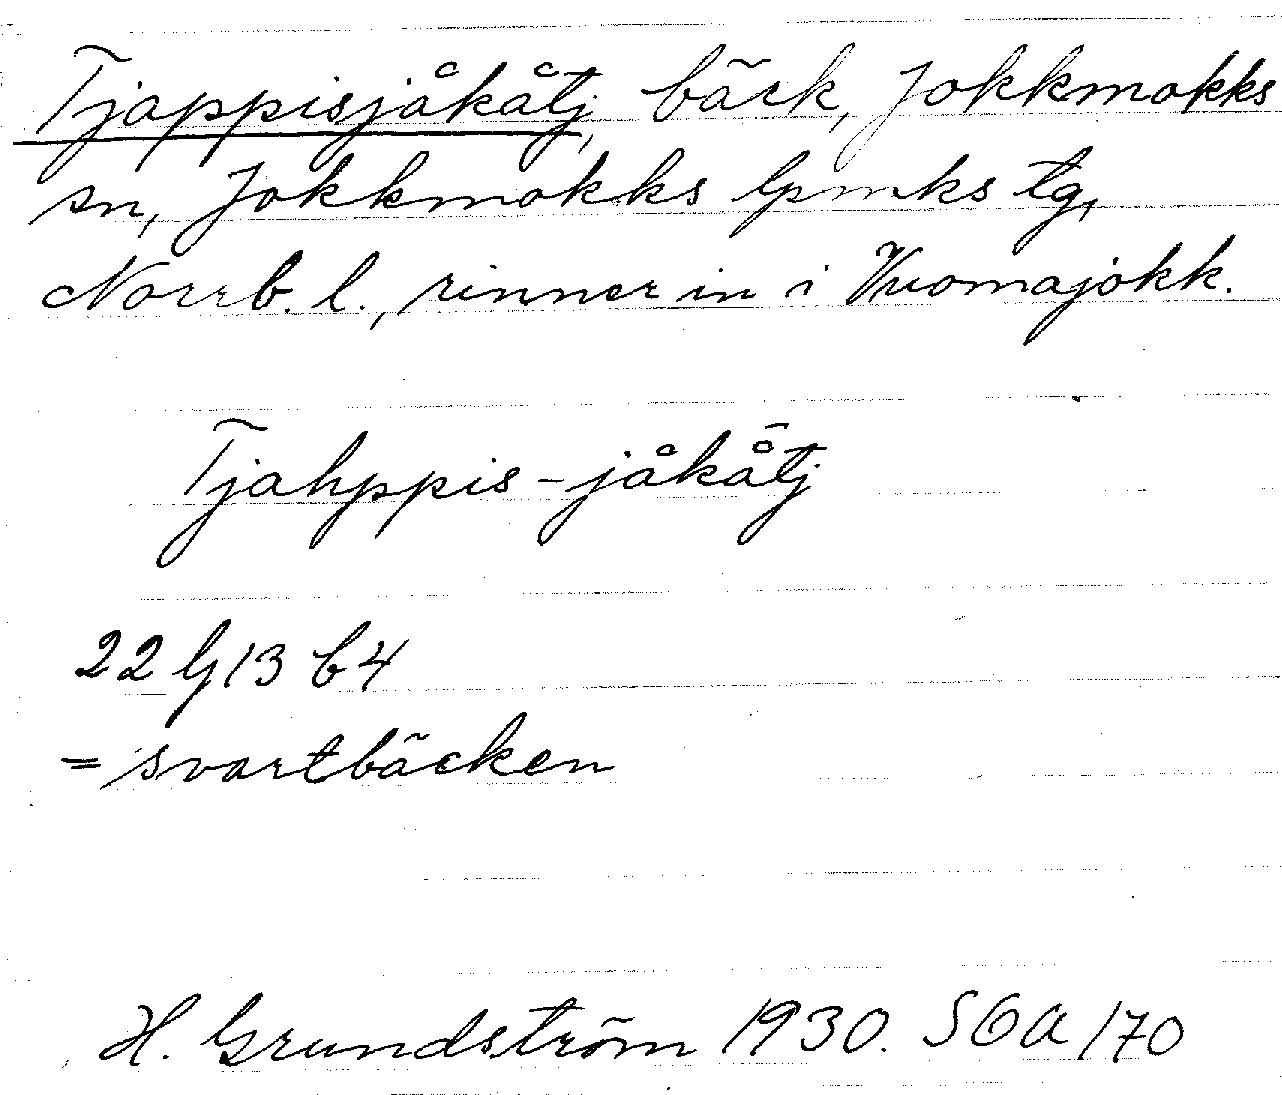 Tjappisjåkåtj, bäck, Jokkmokks
sn, Jokkmokks lpmks tg,
Norrb. l., rinner in i Vuomajokk.
Tjahppis-jåkå̄tj
22 G 13 b 4
= svartbäcken
H. Grundström 1930. SOA 170